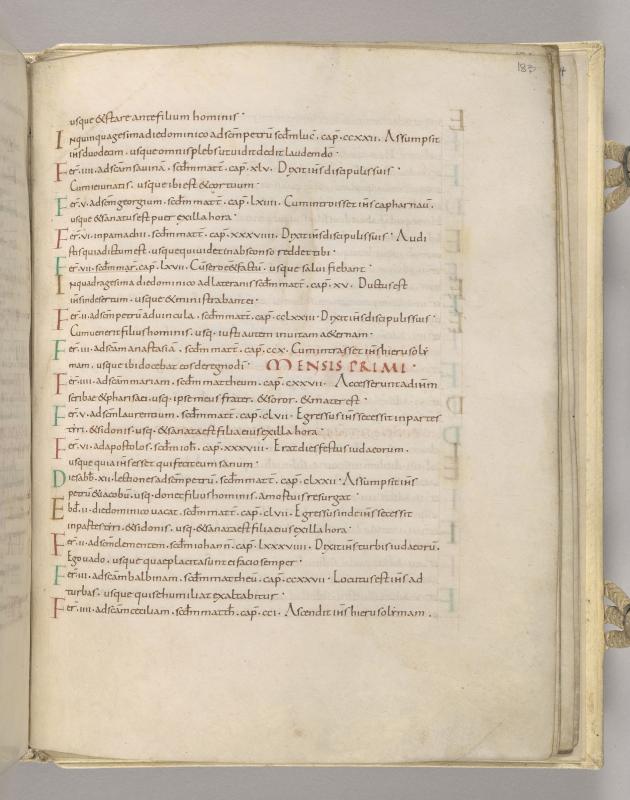 183
usque & stare ante filium hominis·
In quinquagesima die dominico ad scm petrũ scdm luc̃. cap̃. ccxxii. Assumpsit
ih̃s duodecim. usque omnis plebs ut uidit dedit laudem dõ·
Fer̃. iiii. ad scam sauinã. scdm matt̃. cap̃. xlv. Dixit ih̃s discipulis suis·
Cum ieiunatis. usque ibi est & cor tuum·
Fer̃. v. ad scm georgium. scdm matt̃. cap̃. lxiii. Cum introisset ih̃s capharnaũ.
usque & sanatus est puer ex illa hora·
Fer̃. vi. in pamachii. scdm matt̃. cap̃. xxxviiii. Dixit ih̃s discipulis suis· Audi
stis quia dictum est. usque qui uidet in absconso reddet tibi·
Fer̃. vii. scdm mar̃. cap̃. lxvii. Cũ sero eẽt factũ. usque salui fiebant·
In quadragesima die dominico ad lateranis scdm matt̃. cap̃. xv. Ductus est
ih̃s in desertum. usque & ministrabant ei·
Fer̃. ii. ad scm petrũ ad uincula. scdm matt̃. cap̃. cclxxiii· Dixit ih̃s discipulis suis·
Cum uenerit filius hominis. usq· iusti autem in uitam aeternam·
Fer̃. iii. ad scam anastasiã. scdm matt̃. cap̃. ccx. Cum intrasset ih̃s hierusoly
mam. usque ibi docebat eos de regno di· MENSIS PRIMI·
Fer̃. iiii. ad scam mariam. scdm mattheum. cap̃. cxxvii. Accesserunt ad ih̃m
scribae & pharisaei. usq· ipse meus frater. & soror. & mater est·
Fer̃. v. ad scm laurentium. scdm matt̃. cap̃. clvii. Egressus ih̃s secessit in partes
tyri. & sidonis. usq· & sanata est filia eius ex illa hora·
Fer̃. vi. ad apostolos. scdm ioh̃. cap̃. xxxviii. Erat dies festus iudaeorum.
usque quia ih̃s esset qui fecit eum sanum·
Die sabb̃. xii. lectiones ad scm petrũ. scdm matt̃. cap̃. clxxii· Assumpsit ih̃s
petrũ & iacobũ. usq· donec filius hominis. a mortuis resurgat·
Ebd̃. ii. die dominico uacat. scdm matt̃. cap̃. clvii. Egressus inde ih̃s secessit
in partes tyri. & sidonis. usq· & sanata est filia eius ex illa hora·
Fer̃. ii. ad scm clementem. scdm iohann̄. cap̃. lxxxviiii. Dixit ih̃s turbis iudaeorũ.
Ego uado. usque quae placita sunt ei facio semper·
Fer̃. iii. ad scam balbinam. scdm mattheũ. cap̃. ccxxvii· Locutus est ih̃s ad
turbas. usque qui se humiliat exaltabitur·
Fer̃. iiii. ad scam ceciliam. scdm matth̃. cap̃. cci. Ascendit ih̃s hierusolymam.